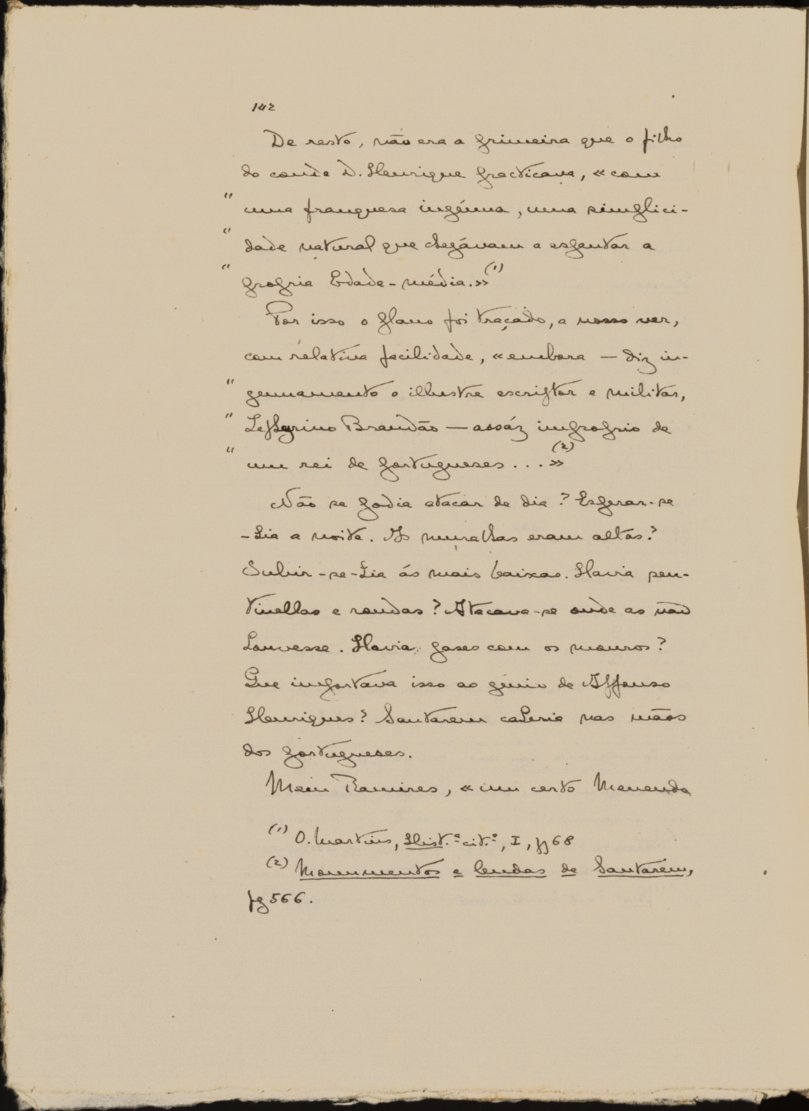 142
De resto, não era a primeira que o filho
do conde D. Henrique practicava, «com
" uma franquesa ingénua, uma simplici-
" dade natural que chegávam a espantar a
" propria Edade-média.»(1)
Por isso o plano foi traçado, a nosso ver,
com relativa facilidade, «embora — diz in-
" genuamente o illustre escriptor e militar,
" Zeferino Brandão — assáz improprio de
" um rei de portugueses...»(2)
Não se podia atacar de dia? Esperar-se
-hia a noite. As muralhas eram altas?
Subir-se-hia ás mais baixas. Havia sen-
tinellas e rondas? Atacava-se onde as não
houvesse. Havia pases com os mouros?
Que importava isso ao génio de Affonso
Henriques? Santarem cahiria nas mãos
dos portugueses.
Mem Ramires, «um certo Menendo
(1) O. Martins, Hist.ª cit.ª, I, pg 68
(2) Monumentos e lendas de Santarém,
pg 566.